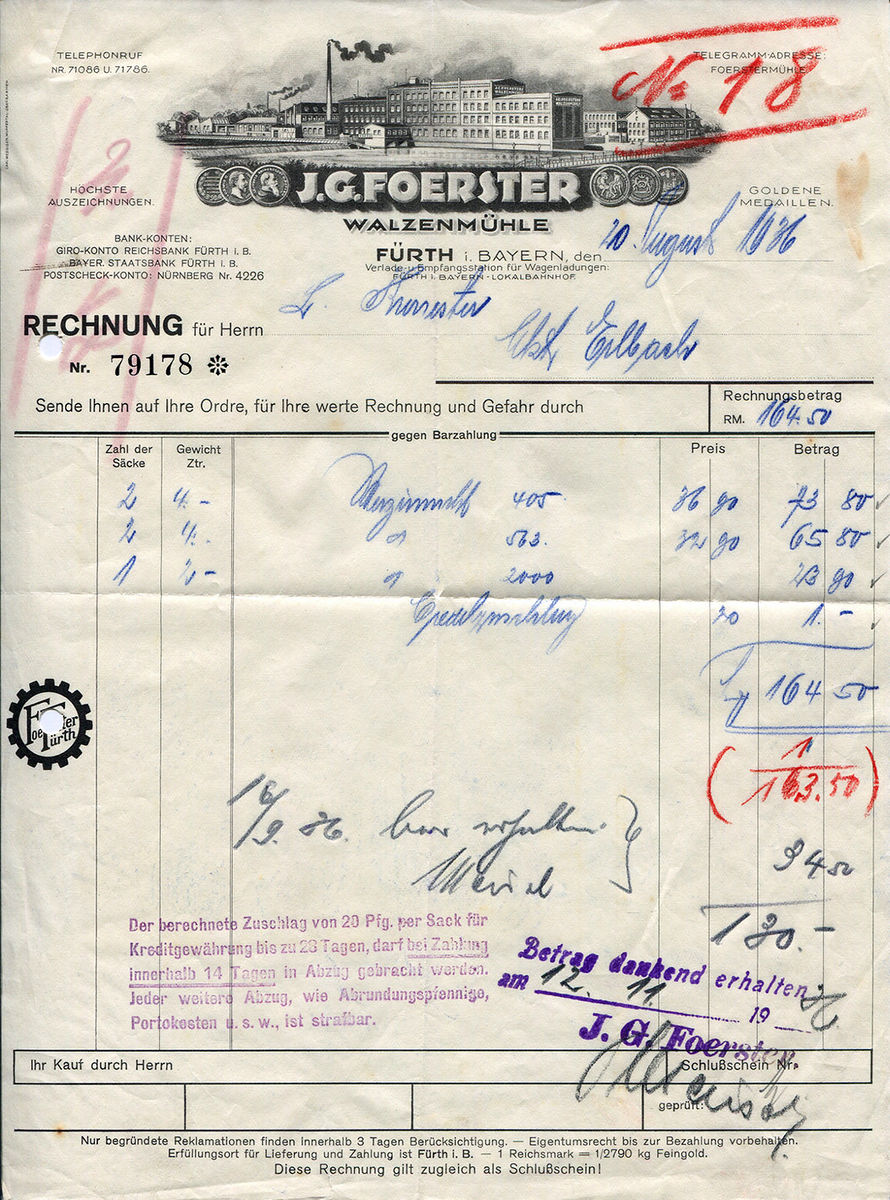 TELEPHONRUF
NR. 71086 U. 71786.
TELEGRAMM-ADRESSE:
FOERSTERMÜHLE.
No 18
HÖCHSTE
AUSZEICHNUNGEN.
J.G.FOERSTER
GOLDENE
MEDAILLEN.
WALZENMÜHLE
BANK-KONTEN:
GIRO-KONTO REICHSBANK FÜRTH i. B.
BAYER. STAATSBANK FÜRTH i. B.
POSTSCHECK-KONTO: NÜRNBERG Nr. 4226
FÜRTH i. BAYERN, den 20 August 1936
Verlade- u. Empfangsstation für Wagenladungen:
FÜRTH i. BAYERN - LOKALBAHNHOF.
RECHNUNG für Herrn
Nr. 79178
Sende Ihnen auf Ihre Ordre, für Ihre werte Rechnung und Gefahr durch
Rechnungsbetrag
RM. 164.50
gegen Barzahlung
Zahl der Säcke Gewicht Ztr. Preis Betrag
2 4.- 405 36 90 73 80
2 4.- " 563. 32 90 65 80
1 2.- " 2000 23 90
20 1.-
164 50
1
163.50
Foerster Fürth
16/9. 36. bar erhalten
34 50
130.-
Der berechnete Zuschlag von 20 Pfg. per Sack für
Kreditgewährung bis zu 28 Tagen, darf bei Zahlung
innerhalb 14 Tagen in Abzug gebracht werden.
Jeder weitere Abzug, wie Abrundungspfennige,
Portokosten u. s. w., ist strafbar.
Betrag dankend erhalten
am 12. 11. 1936
J. G. Foerster
Ihr Kauf durch Herrn
Schlußschein Nr.
geprüft:
Nur begründete Reklamationen finden innerhalb 3 Tagen Berücksichtigung. — Eigentumsrecht bis zur Bezahlung vorbehalten.
Erfüllungsort für Lieferung und Zahlung ist Fürth i. B. — 1 Reichsmark = 1/2790 kg Feingold.
Diese Rechnung gilt zugleich als Schlußschein!